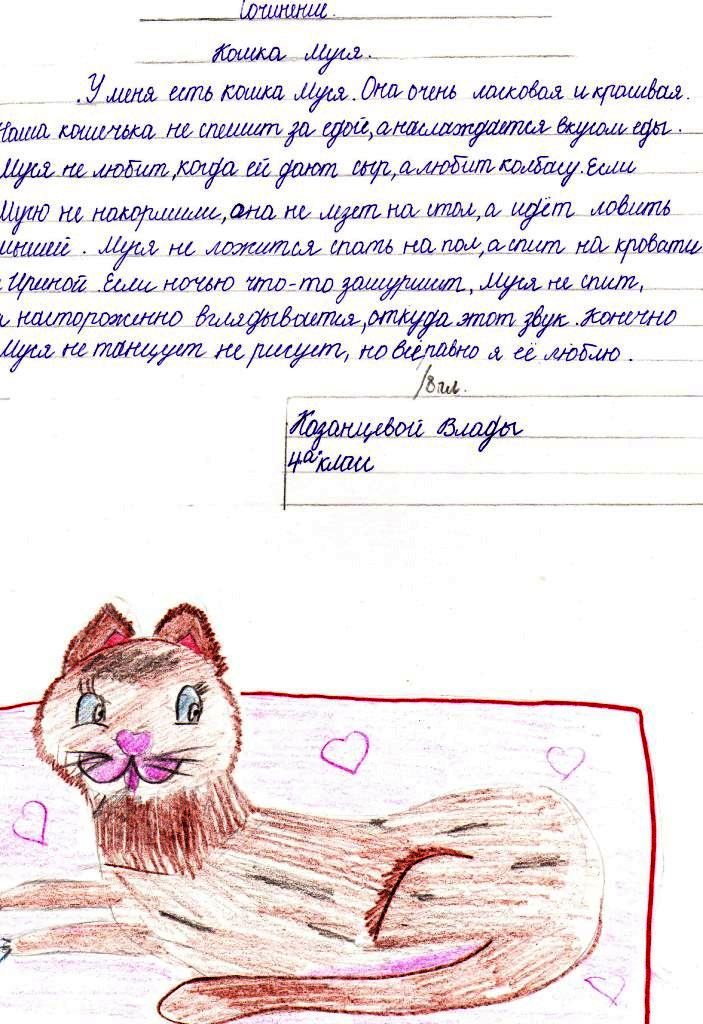 Сочинение.
Кошка Муся.
У меня есть кошка Муся. Она очень ласковая и красивая.
Наша кошечька не спешит за едой, а наслаждается вкусом еды.
Муся не любит, когда ей дают сыр, а любит колбасу. Если
Мусю не накормили, она не лезет на стол, а идёт ловить
мышей. Муся не ложится спать на пол, а спит на кровати
с Ириной. Если ночью что-то зашуршит, Муся не спит,
а настороженно вглядывается, откуда этот звук. Конечно
Муся не танцует не рисует, но всё равно я её люблю.
/8 гл.
Казанцевой Влады
4"а" класс